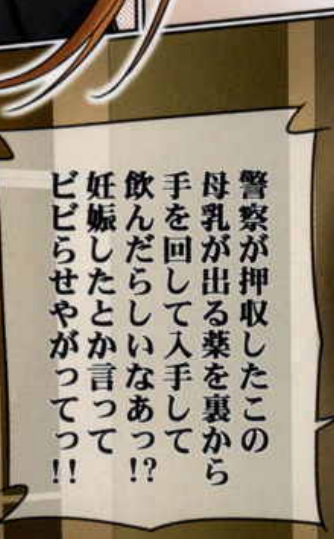 警察が押収したこの
母乳が出る薬を裏から
手を回して入手して
飲んだらしいなあっ!?
妊娠したとか言って
ビビらせやがってっ!!